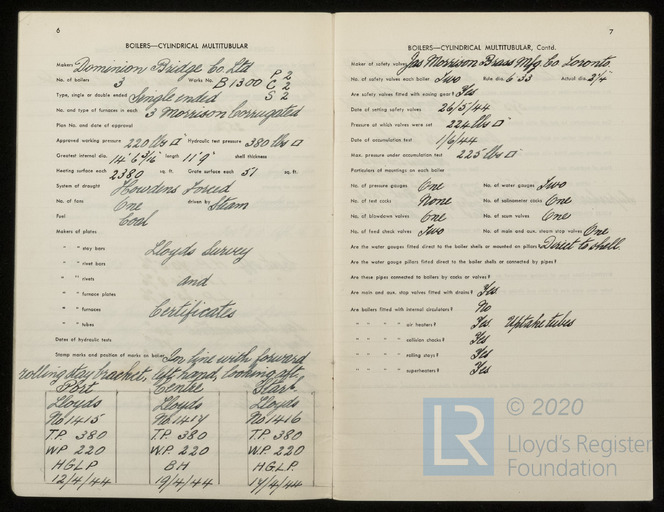 6
BOILERS—CYLINDRICAL MULTITUBULAR
Makers Dominion Bridge Co. Ltd
No. of boilers 3 Works No. B 1300 P 2 C 2 S 2
Type, single or double ended Single ended
No. and type of furnaces in each 3 Morrison Corrugated
Plan No. and date of approval
Approved working pressure 220 lbs □" Hydraulic test pressure 380 lbs □
Greatest internal dia. 14' 6 3/16" length 11' 9" shell thickness
Heating surface each 2380 sq. ft. Grate surface each 51 sq. ft.
System of draught Howdens Forced
No. of fans One driven by Steam
Fuel Coal
Makers of plates
" " stay bars Lloyds Survey
" " rivet bars
" " rivets and
" " furnace plates
" " furnaces Certificates
" " tubes
Dates of hydraulic tests
Stamp marks and position of marks on boiler In line with forward
rolling stay bracket, left hand, looking aft.
Port Centre Starb
Lloyds Lloyds Lloyds
No 1415 No. 1417 No 1416
T.P. 380 T.P. 380 T.P. 380
W.P. 220 W.P. 220 W.P. 220
H.G.L.P. B.H H.G.L.P.
12/4/44 19/4/44 17/4/44
7
BOILERS—CYLINDRICAL MULTITUBULAR, Contd.
Maker of safety valves Jas Morrison Brass Mfg. Co Toronto.
No. of safety valves each boiler Two Rule dia. 6.33 Actual dia. 2 3/4
Are safety valves fitted with easing gear? Yes
Date of setting safety valves 26/5/44
Pressure at which valves were set 224 lbs □"
Date of accumulation test 1/6/44
Max. pressure under accumulation test 225 lbs □"
Particulars of mountings on each boiler
No. of pressure gauges One No. of water gauges Two
No. of test cocks None No. of salinometer cocks One
No. of blowdown valves One No. of scum valves One
No. of feed check valves Two No. of main and aux. steam stop valves One
Are the water gauges fitted direct to the boiler shells or mounted on pillars? Direct to shell.
Are the water gauge pillars fitted direct to the boiler shells or connected by pipes?
Are these pipes connected to boilers by cocks or valves?
Are main and aux. stop valves fitted with drains? Yes
Are boilers fitted with internal circulators? No
" " " " air heaters? Yes Uptake tubes
" " " " collision chocks? Yes
" " " " rolling stays? Yes
" " " " superheaters? Yes
LR
© 2020
Lloyd's Register
Foundation